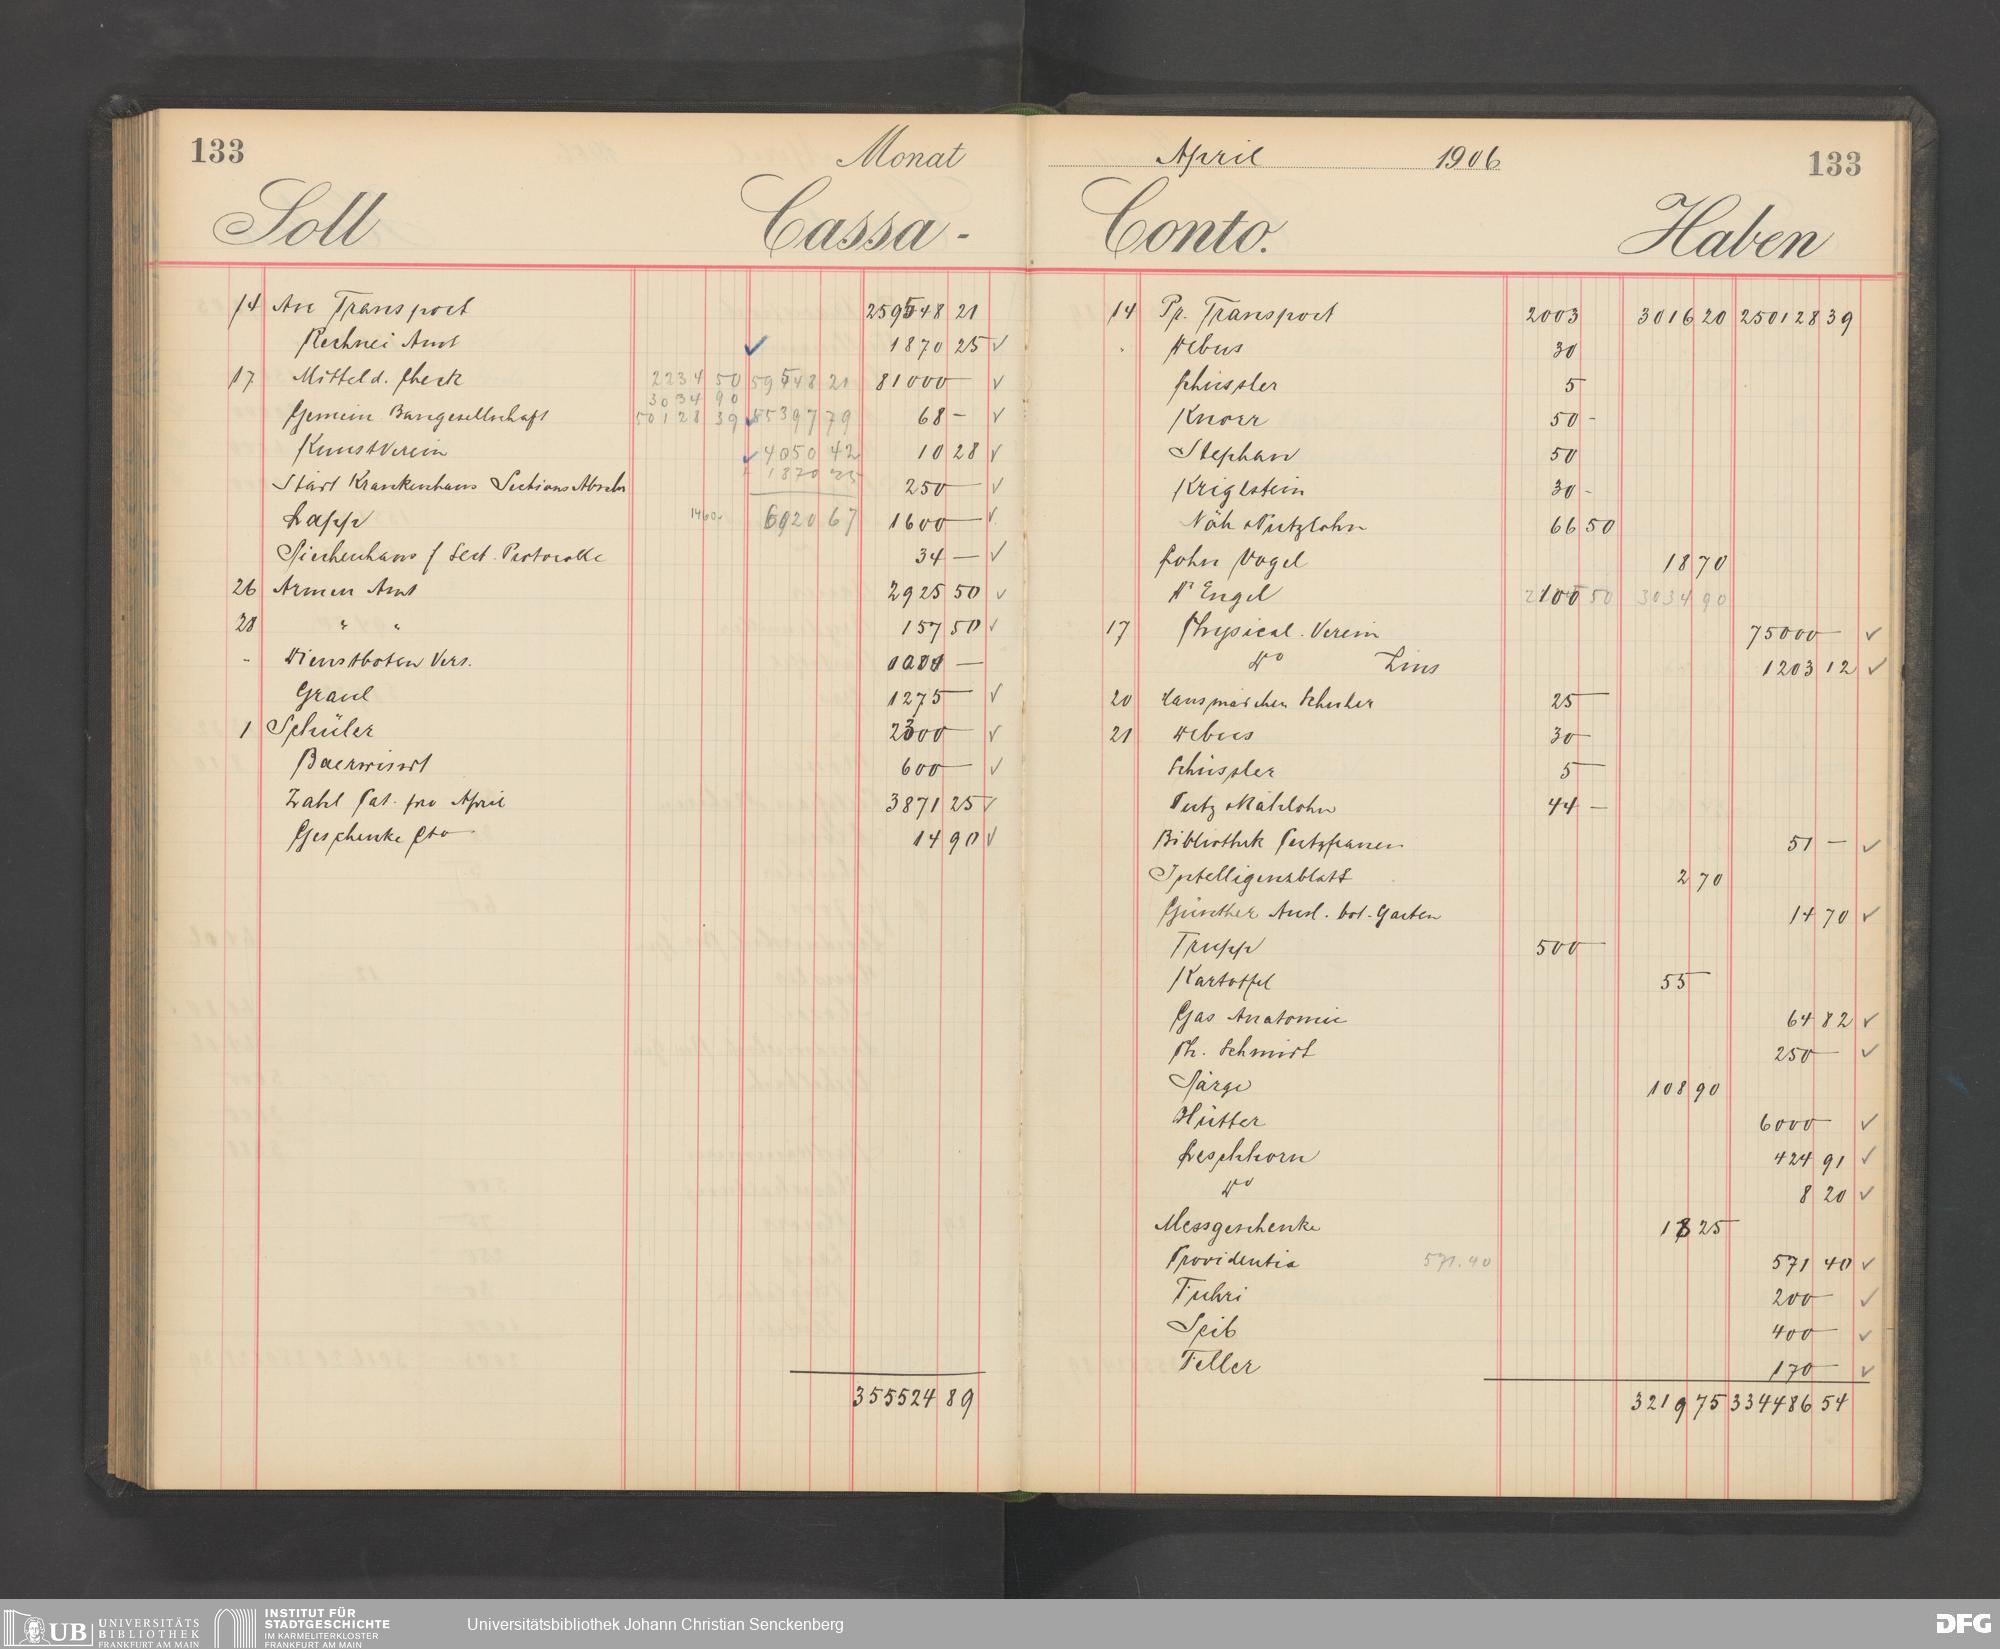 133
Monat
Soll
Cassa -
14 An Transport 259548 21
Rechnei Amt 1870 25
17 Mitteld. Check 2234 50 59548 21 81000 —
3034 90
Gemein. Baugesellschaft 50128 39 55397 79 68 —
Kunstverein 4050 42 10 28
1870 25
Krankenhaus Sections 250 —
Lapp 1460. 6020 67 1600 —
Siechenhaus f Sect. Protocolle 34 —
26 Armen Amt 2925 50
28 " " 157 50
- Dienstboten Vers. —
Graul 1275 —
1 Schüler 2300 —
Baerwindt 600 —
Zahl Pat. pro April 3871 25
Geschenke Cto 14 90
355524 89
April 1906
133
Conto.
Haben
14 Pr. Transport 2003 3016 20 250128 39
Debus 30
Schüssler 5
Knorr 50 -
Stephan 50
Kriglstein 30 -
Näh & Putzlohn 66 50
Lohn Vogel 18 70
Dr Engel 100 3034 90
17 Physical. Verein 75000 —
Do Zins 1203 12
20 Hausmädchen 25 —
21 Debus 30 —
Schüssler 5 —
Putz & Nählohn 44 —
Bibliothek Putzfrauen 51 —
Intelligenzblatt 2 70
Günther Ausl. bot. Garten 14 70
Trupp 500 —
Kartoffel 55 —
Gas Anatomie 64 82
Ph. Schmidt 250 —
Särge 108 90
Hütter 6000 —
Leschhorn 424 91
Do 8 20
Messgeschenke 18 25
Providentia 571.40 571 40
Fuhri 200 —
Seib 400 —
Teller 170 —
3219 75 334486 54
UB UNIVERSITÄTS
BIBLIOTHEK
FRANKFURT AM MAIN
INSTITUT FÜR
STADTGESCHICHTE
IM KARMELITERKLOSTER
FRANKFURT AM MAIN
Universitätsbibliothek Johann Christian Senckenberg
DFG